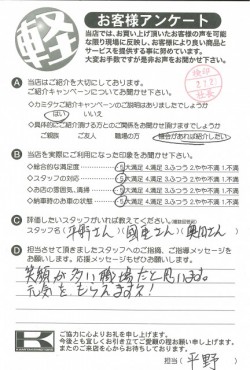 軽
お客様アンケート
当店では、お買い上げ頂いたお客様の声を可能
な限り現場に反映し、お客様により良い商品と
サービスを提供する事に努めています。
大変お手数ですが是非お声をお聞かせ下さい。
A 当店はご紹介を大切にしております。
ご紹介キャンペーンについてお聞かせ下さい。
◇カミタケご紹介キャンペーンのご説明はありましたでしょうか
はい いいえ
◇具体的にご紹介頂ける方とのご関係をお聞かせ頂けますでしょうか
ご親族 ご友人 職場の方 機会があれば紹介したい
B 当店を実際にご利用になった印象をお聞かせ下さい。
◇総合的な満足度 5大満足 4.満足 3.ふつう 2.やや不満 1.不満
◇スタッフの対応 5大満足 4.満足 3.ふつう 2.やや不満 1.不満
◇お店の雰囲気、清掃 5大満足 4.満足 3.ふつう 2.やや不満 1.不満
◇納車時のお車の状態 5大満足 4.満足 3.ふつう 2.やや不満 1.不満
C 評価したいスタッフがいれば教えてください。(複数回答可)
スタッフ名(平野さん)(國定さん)(奥田さん)
D 担当させて頂きましたスタッフへのご指摘、ご指導メッセージを
お願いします。ご応援メッセージもお願いします。
笑顔が多い職場だと思います。
元気をもらえます!
K
ご協力に心よりお礼を申し上げます。
今後とも宜しくお引き立てご愛顧の程お願い申し上げます。
またのご来店を心からお待ちしております。
担当(平野)